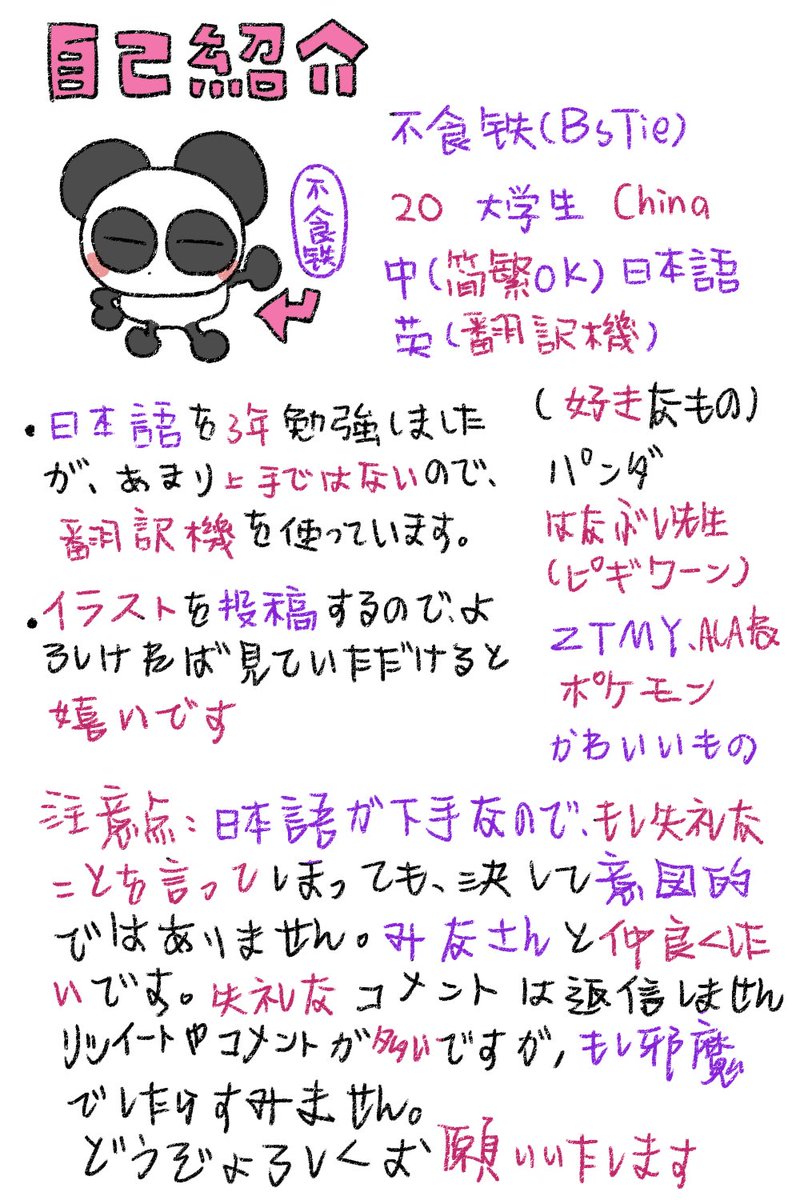 自己紹介
不食铁(BsTie)
不食铁
20 大学生 China
中(简繁OK)日本語
英(翻訳機)
・日本語を3年勉強しました
が、あまり上手ではないので、
翻訳機を使っています。
・イラストを投稿するので、よ
ろしけたば見ていただけると
嬉いです
(好きなもの)
パンダ
はなぶし先生
(ピギワーン)
ZTMY、ACAね
ポケモン
かわいいもの
注意点:日本語が下手なので、もし失礼な
ことを言ってしまっても、决して意図的
ではありません。みなさんと仲良くした
いです。失礼な コメントは返信しません
リツイートやコメントが多いですが,もし邪魔
でしたらすみません。
どうぞよろしくお願いいたします